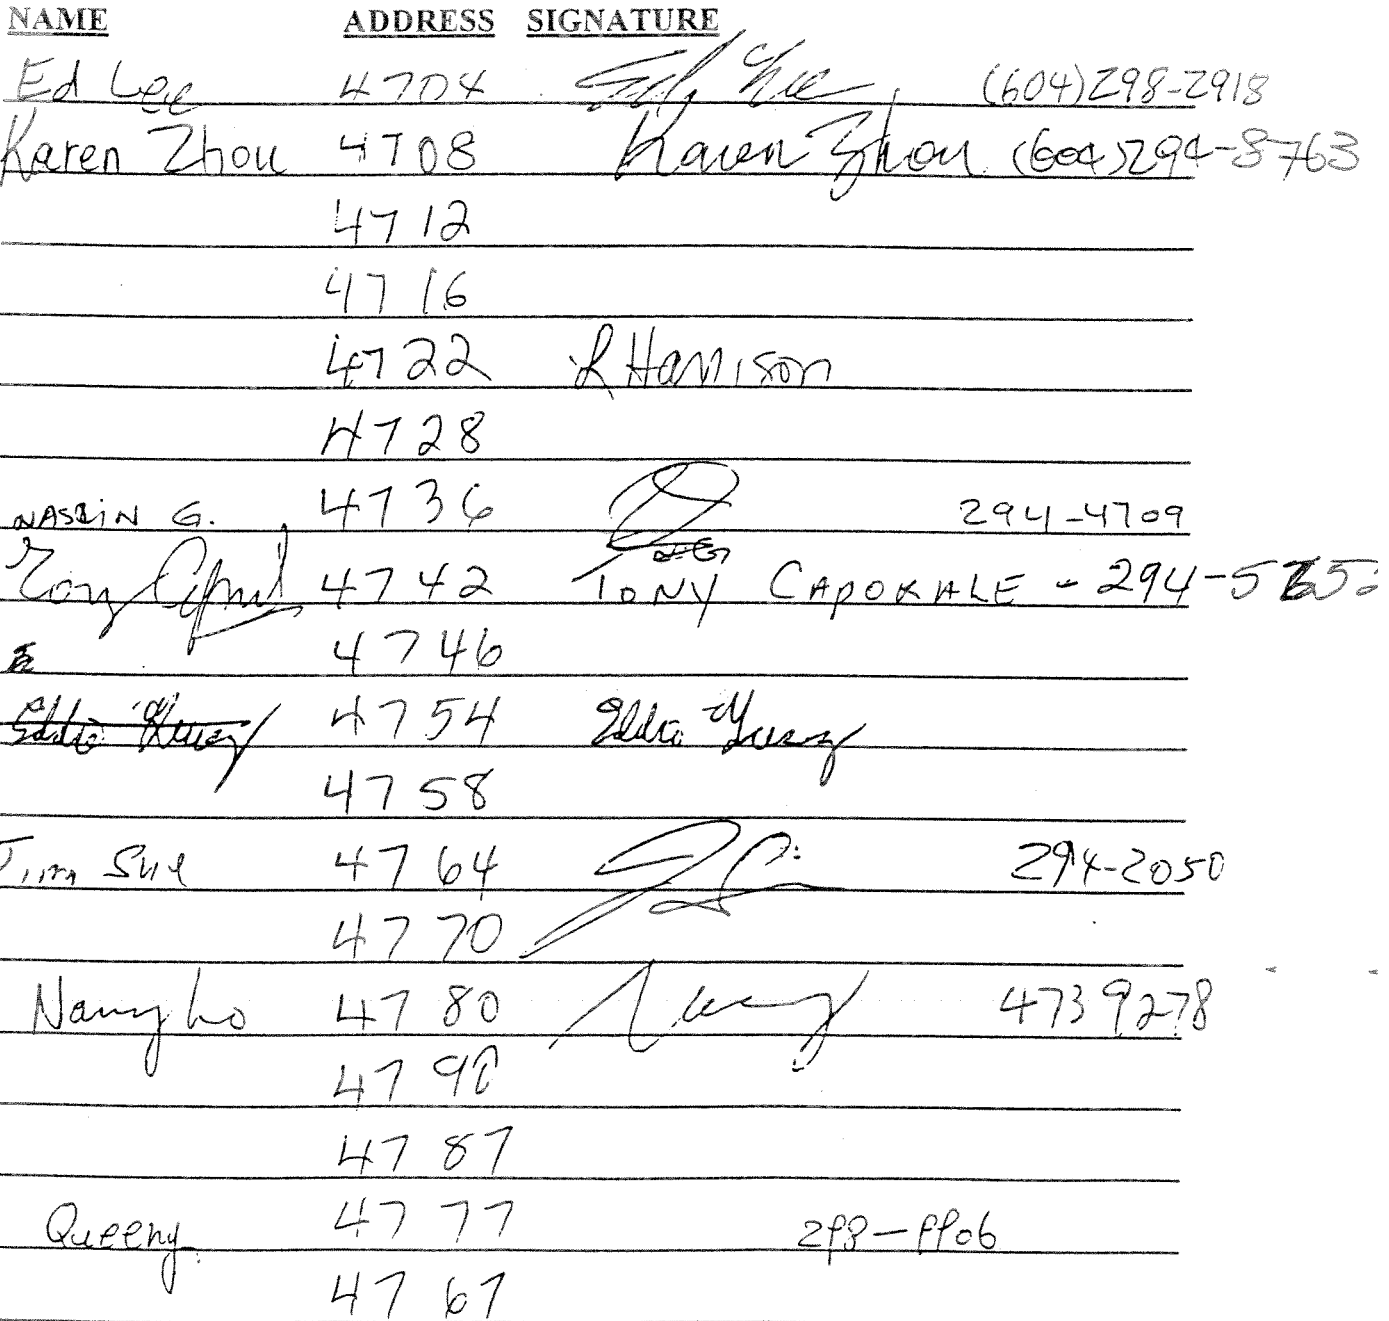 NAME ADDRESS SIGNATURE
Ed Lee 4704 Ed Lee (604)298-2918
Karen Zhou 4708 Karen Zhou (604)294-8763
4712
4716
4722 L Harrison
4728
NASRIN G. 4736 294-4709
Tony 4742 TONY CAPORALE - 294-5652
4746
4754 Eddie
4758
Jim Sue 4764 294-2050
4770
Nancy Lo 4780 Nancy 4739278
4790
4787
Queeny 4777 298-9906
4767